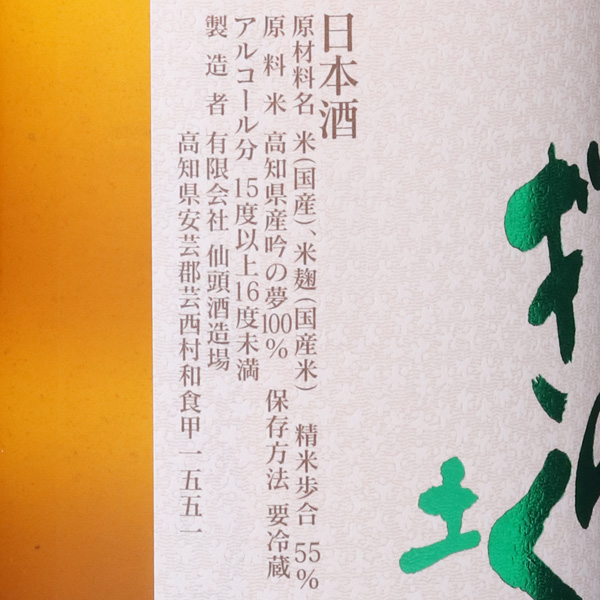 日本酒
原材料名 米(国産)、米麹(国産米) 精米歩合 55%
原料米 高知県産吟の夢100% 保存方法 要冷蔵
アルコール分 15度以上16度未満
製造者 有限会社 仙頭酒造場
高知県安芸郡芸西村和食甲一五五一
土